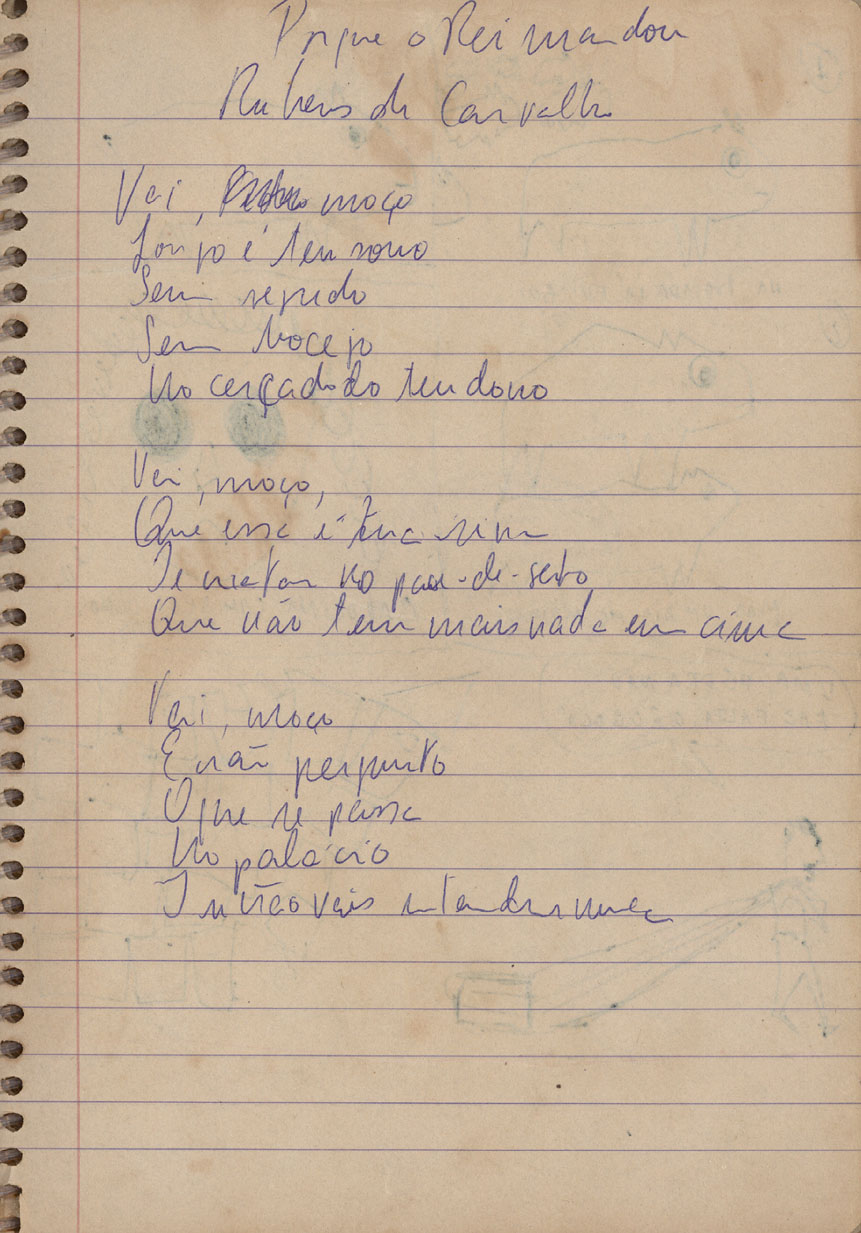 Porque o Rei mandou
Rubens de Carvalho
Vai, moço
Longo é teu sono
Sem segredo
Sem bocejo
No cercado do teu dono
Vai, moço,
Que essa é tua sina
Te matar no pau-de-sebo
Que não tem mais nada em cima
Vai, moço
E não pergunto
O que se passa
No palácio
Tu não vais entender nunca